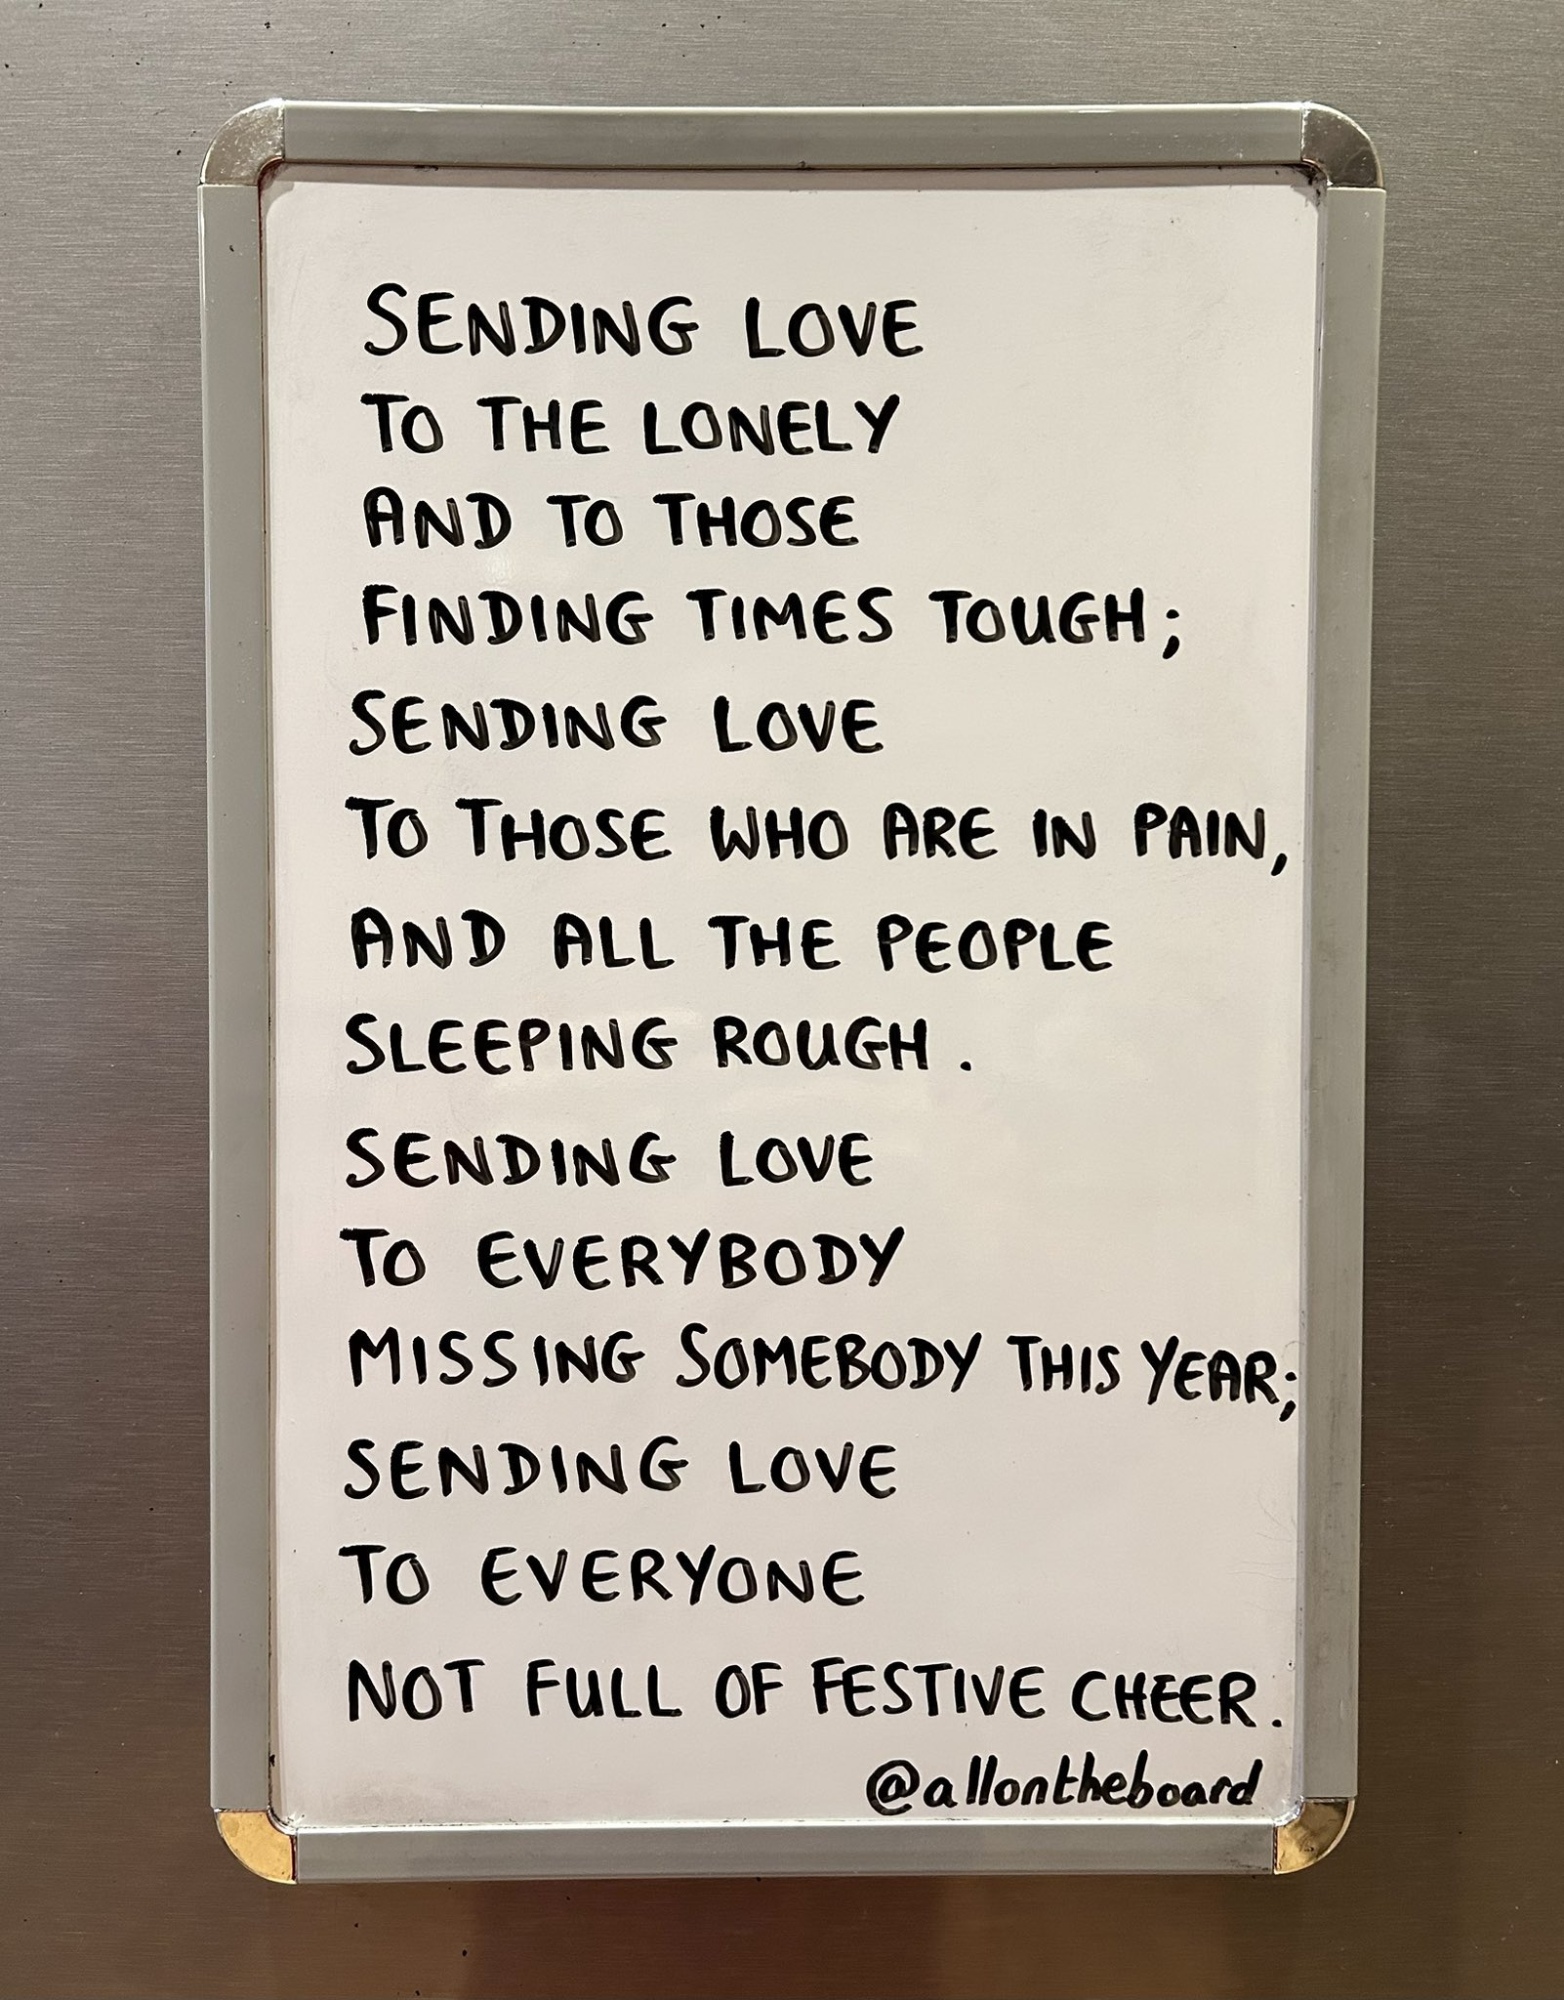 SENDING LOVE
TO THE LONELY
AND TO THOSE
FINDING TIMES TOUGH;
SENDING LOVE
TO THOSE WHO ARE IN PAIN,
AND ALL THE PEOPLE
SLEEPING ROUGH.
SENDING LOVE
TO EVERYBODY
MISSING SOMEBODY THIS YEAR;
SENDING LOVE
TO EVERYONE
NOT FULL OF FESTIVE CHEER.
@allontheboard